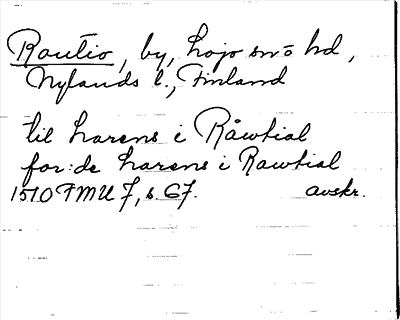 Rautio, by, Lojo sn=o hd,
Nylands l., Finland
til Larens i Råwtial
for:de Larens i Rawtial
1510 FMU 7, s. 67. avskr.